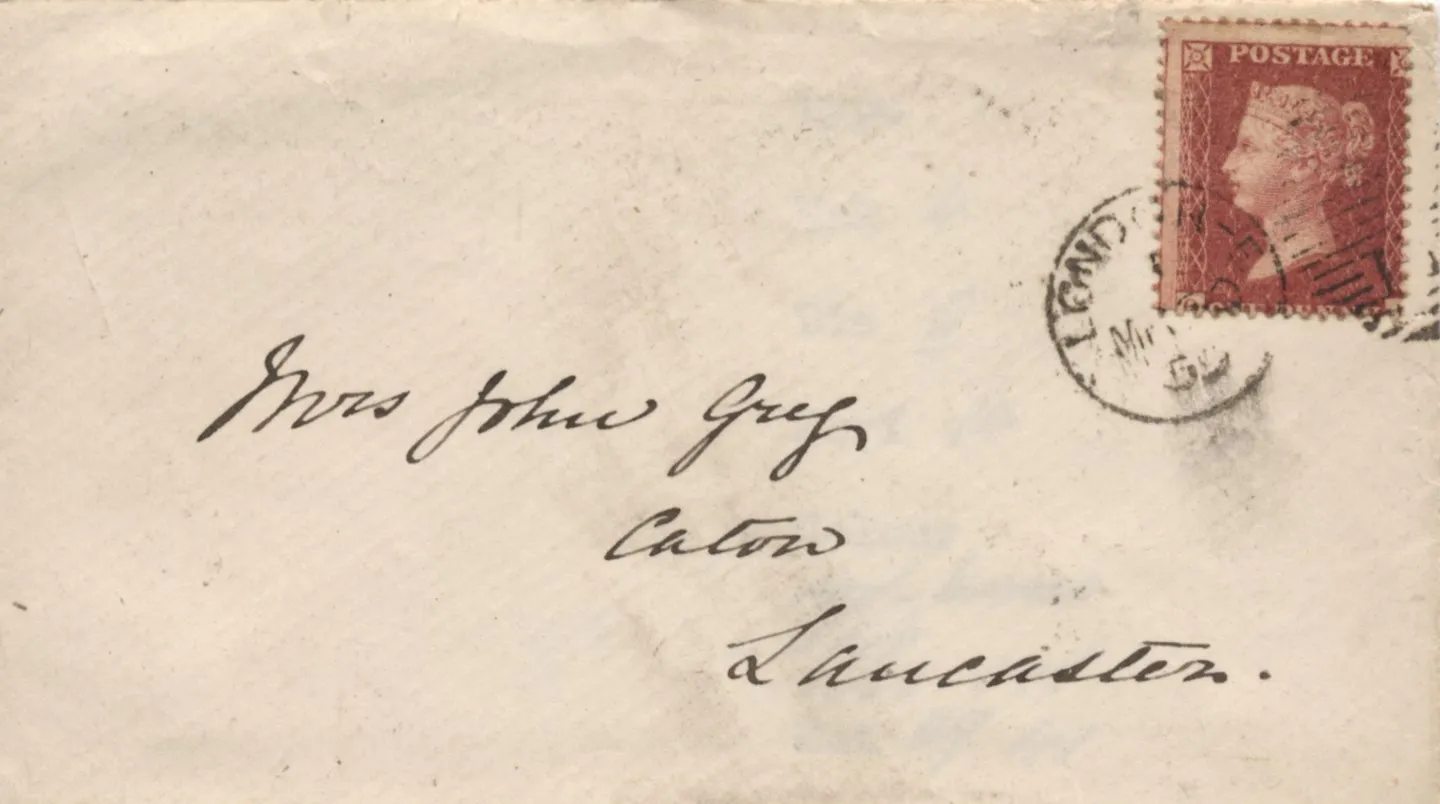 POSTAGE
LONDON
Mrs John Greg
Caton
Lancaster.